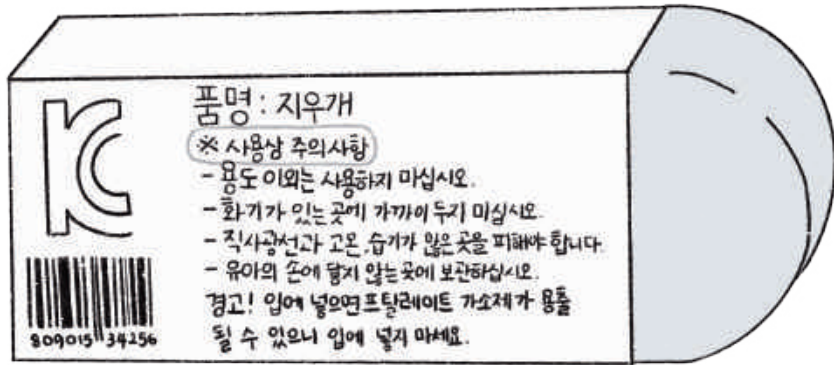 KC
품명 : 지우개
※ 사용상 주의사항
- 용도 이외는 사용하지 마십시오.
- 화기가 있는 곳에 가까이 두지 마십시오.
- 직사광선과 고온, 습기가 많은 곳을 피해야 합니다.
- 유아의 손에 닿지 않는 곳에 보관하십시오.
경고! 입에 넣으면 프탈레이트 가소제가 용출
될 수 있으니 입에 넣지 마세요.
809015 34256